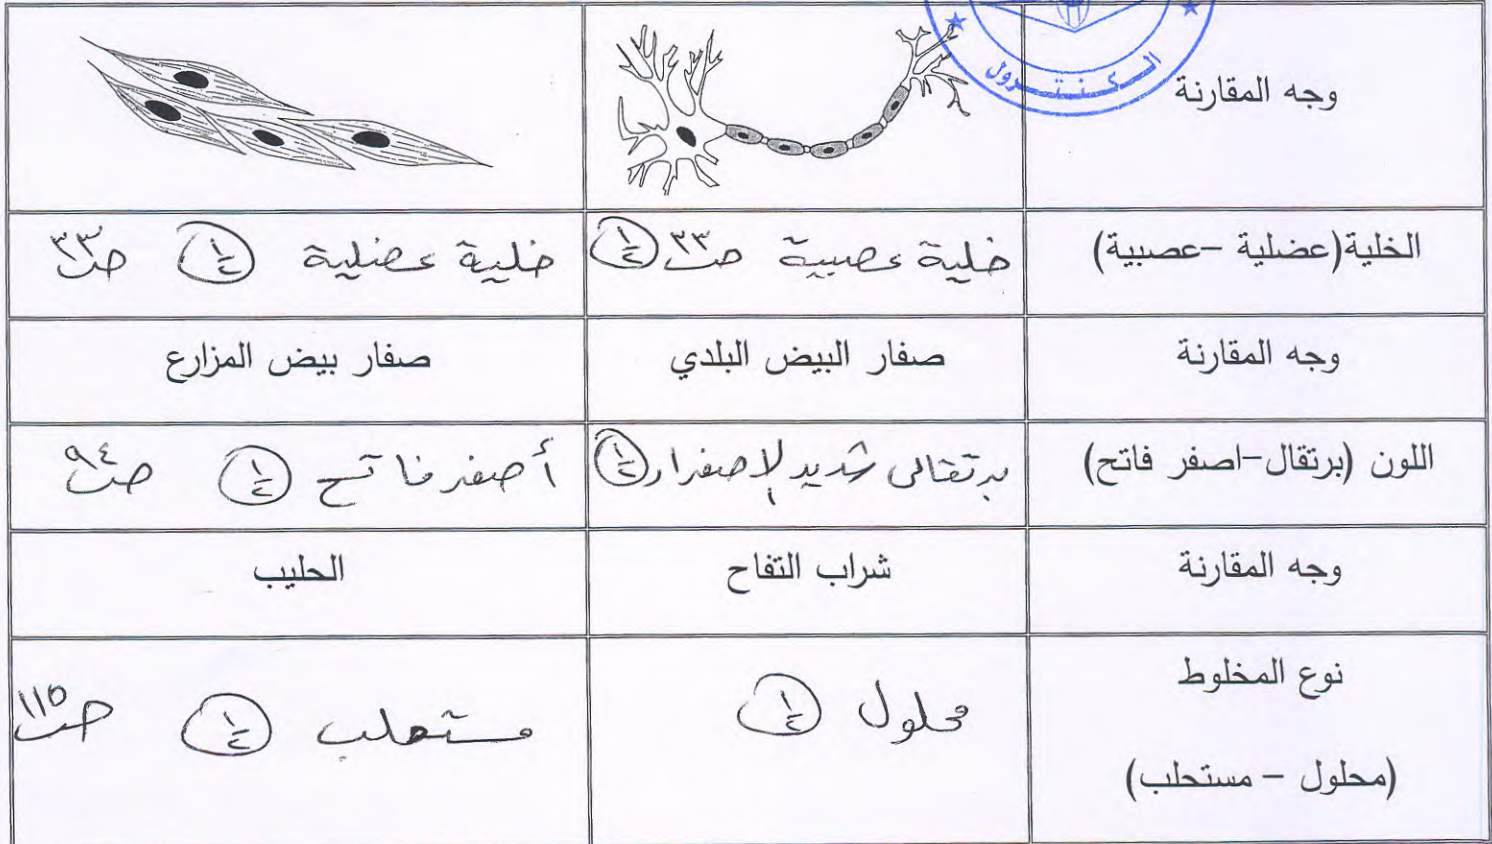 الكنترول
وجه المقارنة
الخلية(عضلية –عصبية) خلية عصبية ص٣٣ ½ خلية عضلية ½ ص٣٣
وجه المقارنة صفار البيض البلدي صفار بيض المزارع
اللون (برتقال–اصفر فاتح) برتقالى شديد الإصفرار ½ أصفر فاتح ½ ص٩٤
وجه المقارنة شراب التفاح الحليب
نوع المخلوط
محلول ½ مستحلب ½ ص١١٥
(محلول – مستحلب)